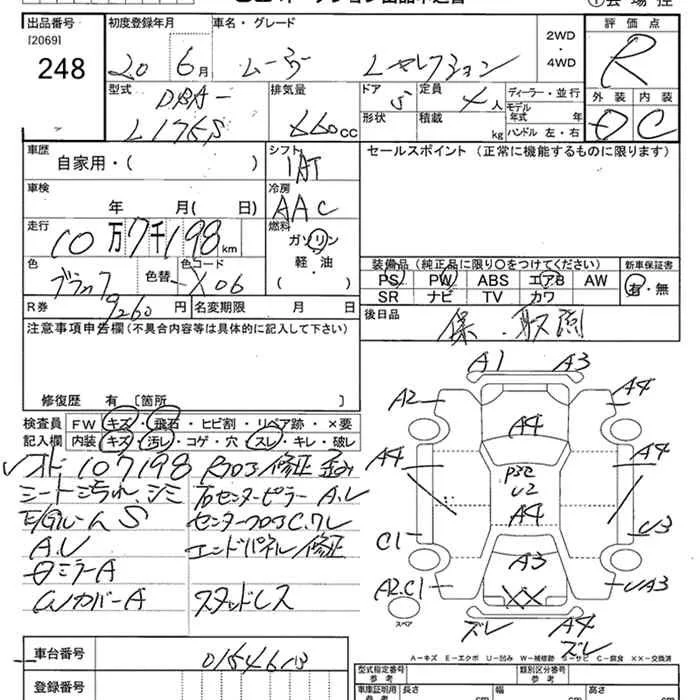 出品番号 初度登録年月 車名・グレード 2WD・4WD 評価点
[2069]
248 20 6月 ムーヴ Lセレクション R
型式 排気量 ドア 定員 ディーラー・並行 外装 内装
DBA- 5 4人 モデル年式 年
L175S 660cc 形状 積載 kg ハンドル 左・右 D C
車歴 シフト セールスポイント(正常に機能するものに限ります)
自家用・( ) IAT
車検 冷房
年 月( 日) AAC
走行 燃料
10万7千198km ガソリン
色 色替 色コード 軽・油
ブラック X06 ( )
装備品(純正品に限り○をつけてください) 新車保証書
PS PW ABS エアB AW 有・無
SR ナビ TV カワ
R券 9260円 名変期限 月 日
後日品 保・取
注意事項申告欄(不具合内容等は具体的に記入して下さい)
修復歴 有 [箇所
検査員 FW キズ・飛石・ヒビ割・リペア跡・×要
記入欄 内装 キズ・汚レ・コゲ・穴・スレ・キレ・破レ
107198
シート シミ 右センターピラーA.U
E/GルームS センター
A.U エンドパネル修正
ミラーA
Wカバー A スタッドレス
A1 A3
A2 A4
A4
A4 A4
U2
A4
C1 U3
A3
A2.C1 UA3
XX
スペア
ズレ A4
ズレ
A-キズ E-エクボ U-凹み W-補修跡 S-サビ C-腐食 XX-交換済
車台番号
登録番号
型式指定番号 参考 類別区分番号 参考
車庫証明用 参考 長さ cm 幅 cm 高さ cm